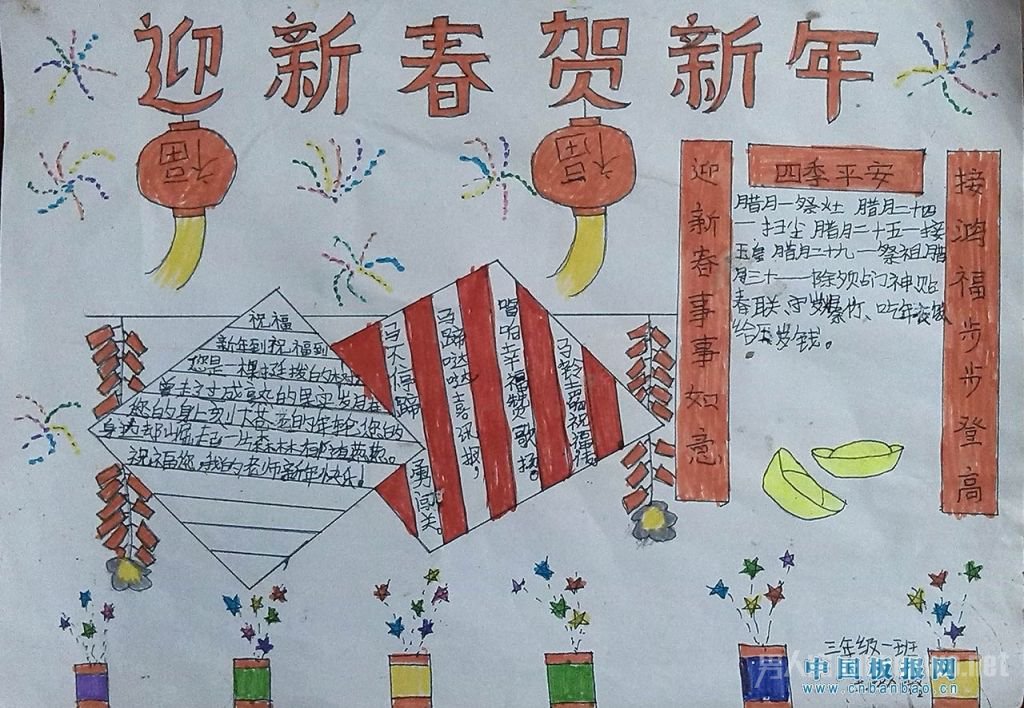 迎新春贺新年
福
福
迎新春事事如意
四季平安
接鸿福步步登高
腊月一祭灶 腊月二十四
一扫尘 腊月二十五一接
玉皇 腊月二十九一祭祖 腊
月三十一一除夕 门神 贴
春联 守岁 爆竹、吃年夜饭
给压岁钱。
祝福
新年到祝福到
您是一棵挺拔的
曾寿过成熟的果实 岁月在
您的身上刻 年轮 您的
身 却崛起一片森林
祝福您,我的老师新年快乐!
马不停蹄 勇闯关。
马蹄哒哒喜讯报,
唱响幸福赞歌扬。
马铃 祝福
三年级一班
中国板报网
www.cnbanbao.cn